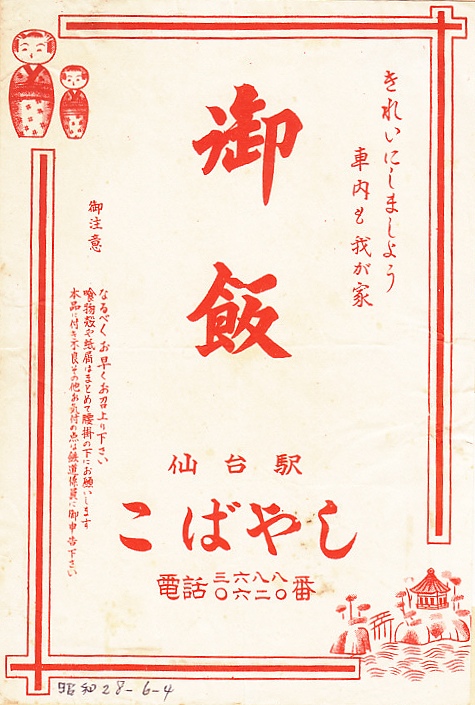 きれいにしましよう
車内も我が家
御飯
仙台駅
こばやし
電話 三六八八 〇六二〇番
御注意
なるべくお早くお召上り下さい
喰物殻や紙屑はまとめて腰掛の下にお願いします
本品に付き不良その他お気付の点は鉄道係員に御申告下さい
昭和28-6-4